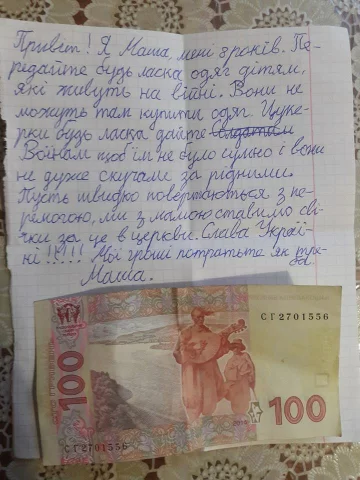 Привіт! Я Маша, мені 9 років. Пе-
редайте будь ласка одяг дітям,
які живуть на війні. Вони не
можуть там купити одяг. Цуке-
рки будь ласка дайте
Воїнам щоб їм не було сумно і вони
не дуже скучали за рідними.
Пусть швидко повертаються з пе-
ремогою, ми з мамою ставимо сві-
чки за це в церкви. Слава Украї-
ні !!!!! Мої гроші потратьте як тре-
ба
Маша.
СГ2701556
100
100
СГ2701556